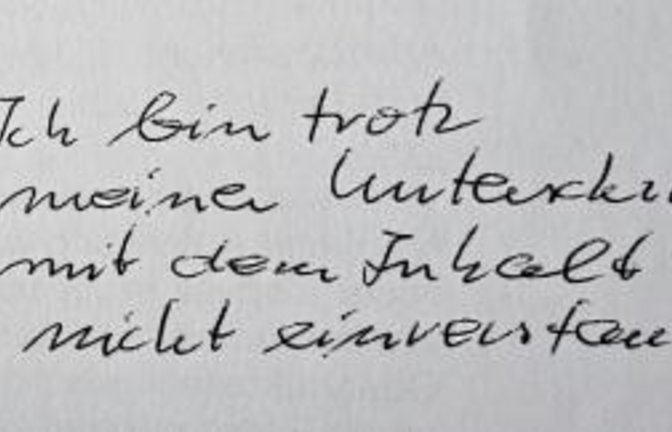 Ich bin trotz
meiner Unterschri
mit dem Inhalt
nicht einverstan